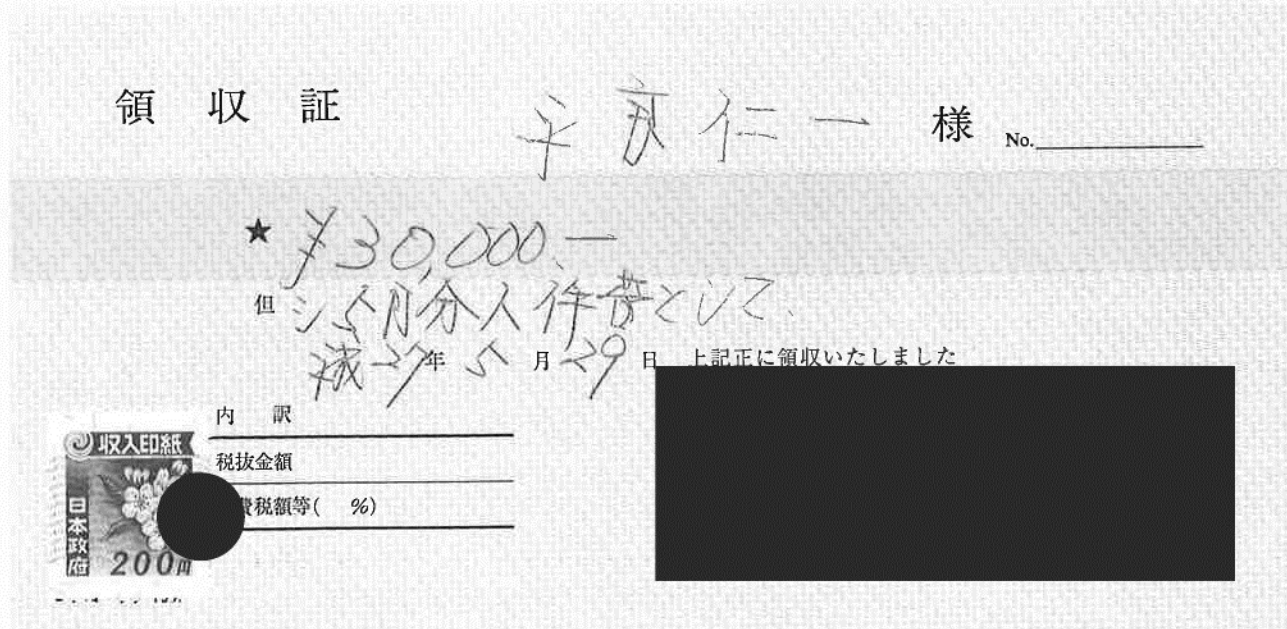 領収証 平良仁一 様 No.
★ ¥30,000.-
但 5月分人件費として、
平成27年5月29日 上記正に領収いたしました
内訳
税抜金額
費税額等( %)
収入印紙
日本政府
200円